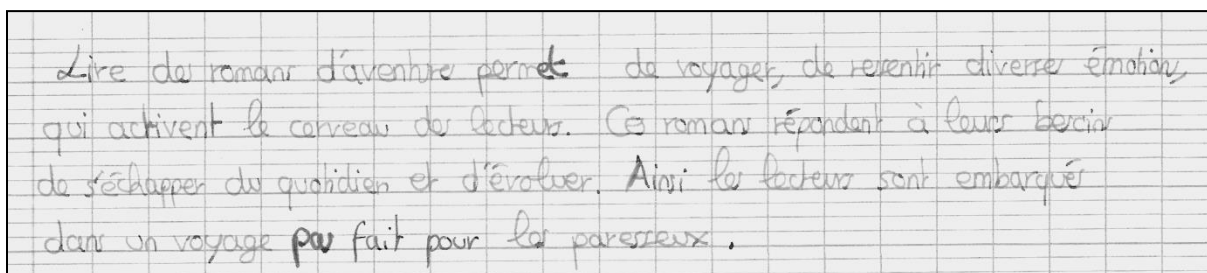 Lire des romans d'aventure permet de voyager, de ressentir diverse émotion,
qui activent le cerveau des lecteurs. Ces romans répondent à leurs besoins
de s'échapper du quotidien et d'évoluer. Ainsi les lecteurs sont embarqués
dans un voyage pas fait pour les paresseux.